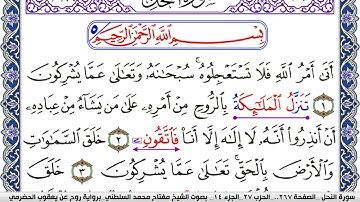 بِسْمِ ٱللَّهِ ٱلرَّحْمَٰنِ ٱلرَّحِيمِ
أَتَىٰ أَمْرُ ٱللَّهِ فَلَا تَسْتَعْجِلُوهُ سُبْحَٰنَهُۥ وَتَعَٰلَىٰ عَمَّا يُشْرِكُونَ
١ تَنَزَّلُ ٱلْمَلَٰٓئِكَةُ بِٱلرُّوحِ مِنْ أَمْرِهِۦ عَلَىٰ مَن يَشَآءُ مِنْ عِبَادِهِۦ
أَنْ أَنذِرُوا۟ أَنَّهُۥ لَا إِلَٰهَ إِلَّا أَنَا فَٱتَّقُونِۦ ٢ خَلَقَ ٱلسَّمَٰوَٰتِ
وَٱلْأَرْضَ بِٱلْحَقِّ تَعَٰلَىٰ عَمَّا يُشْرِكُونَ ٣ خَلَقَ
سورة النحل .. الصفحة ٢٦٧.. الحزب ٢٧ .. الجزء ١٤ .. بصوت الشيخ مفتاح محمد السلطني .. برواية روح عن يعقوب الحضرمي